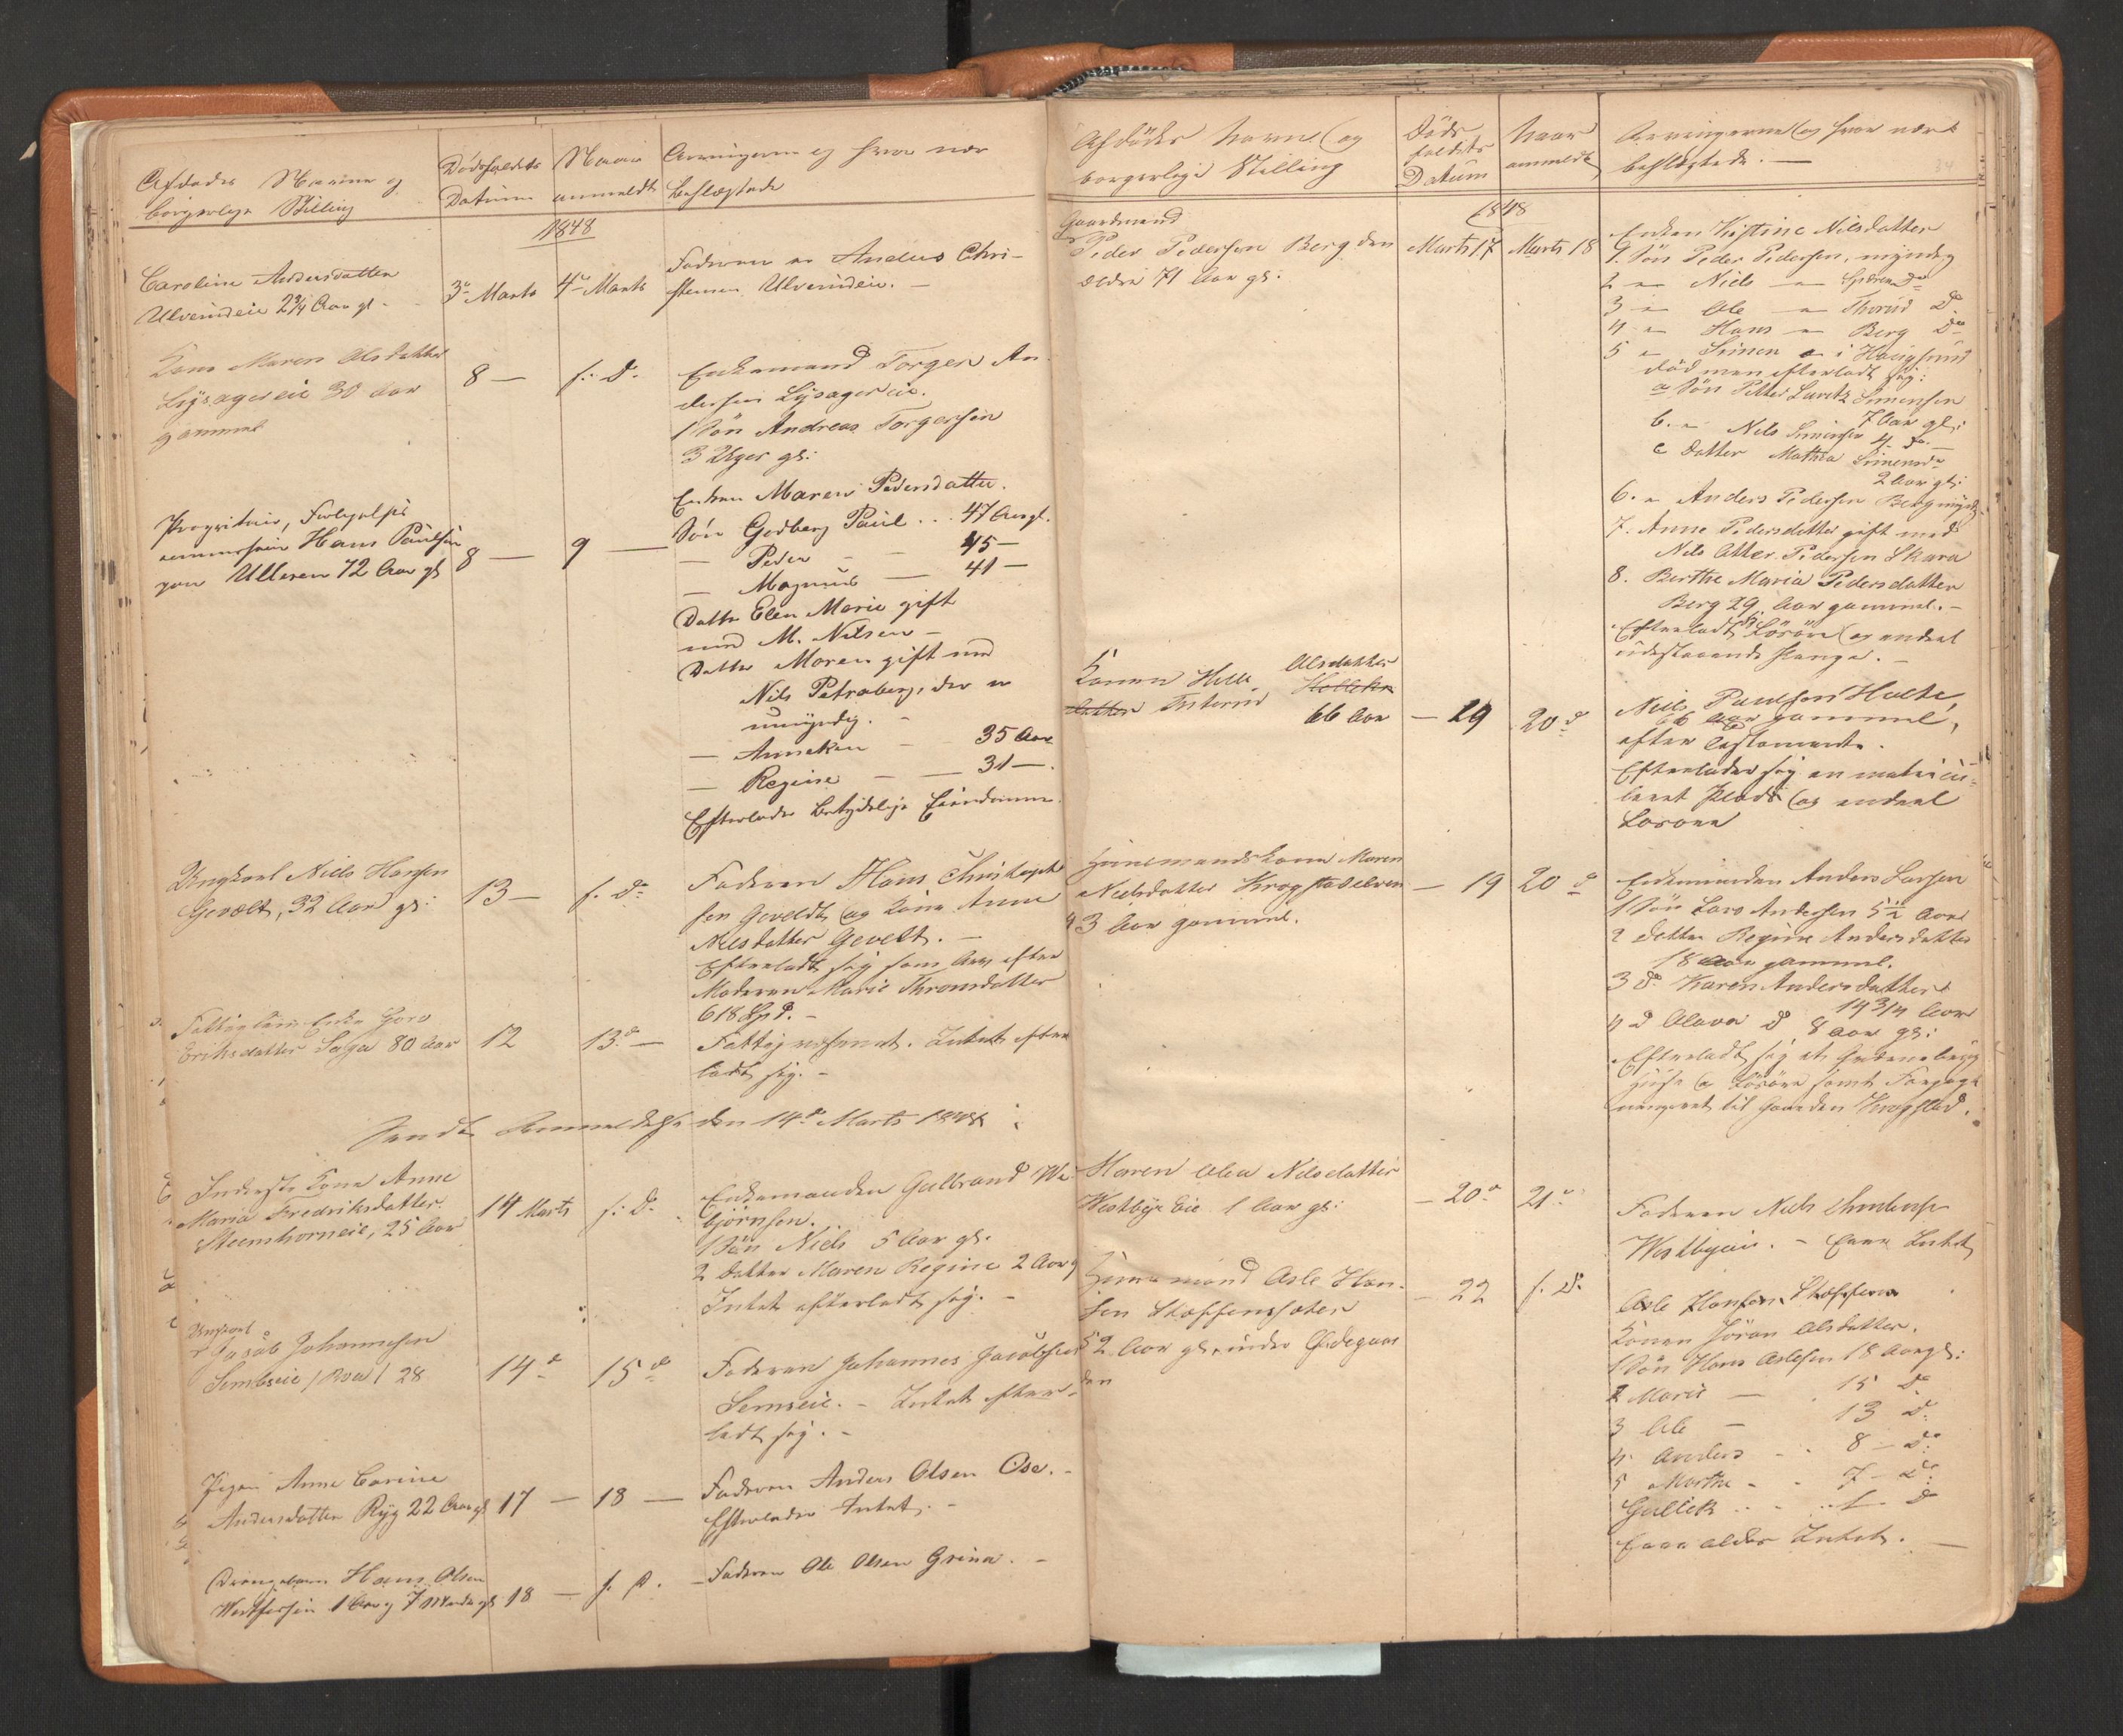 Afdødes Navne og
borgerlige Stilling
Dødsfaldets
Datum
Naar
anmeldt
Arvingerne og hvor nær
beslægtede
1848
Caroline Andersdatter
Ulverudeie 2 3/4 Aar gl.
3de Marts
4de Marts
Faderen er Anders Chri-
stensen Ulverudeie. –
Kone Maren Olsdatter
Lysagereie 30 Aar
gammel
8 —
s. D.
Enkemand Torger An-
dersen Lysagereie.
1 Søn Andreas Torgersen
3 Uger gl:
Proprietair, Forligelses
commissair Hans Paulsen
Ulleren 72 Aar gl
8 —
9 —
Enken Maren Pedersdatter.
Søn Godberg Paul . . 47 Aar gl.
— Peder — 45 —
— Magnus — 41 —
Datter Elen Marie gift
med M. Nilsen –
Datter Maren gift med
Nils Petraberg, der er
umyndig. –
— Anneken — 35 Aar
— Regine — 31 —.
Efterlader betydelige Eiendomme.
Ungkarl Niels Hansen
Gevelt, 32 Aar gl:
13 —
s. D.
Faderen Hans Christoph-
sen Geveldt og Kone Anne
Nilsdatter Gevelt. –
Efterladt sig som Arv efter
Moderen Marie Thronsdatter
618 Spd. –
Fattiglem Enke Goro
Eriksdatter Saga 80 Aar
12
13de —
Fattigvæsenet. Intet efter
ladt sig. –
Sendt Anmeldelse den 14de Marts 1848
Inderste Kone Anne
Maria Fredriksdatter
Steenshorneie, 25 Aar
14 Marts
s. D.
Enkemanden Gulbrand We-
bjørnsen.
1 Søn Niels 5 Aar gl.
2 Datter Maren Regine 2 Aar g
Intet efterladt sig. –
Ungkarl
Jacob Johannesen
Semseie / Roa / 28
14de
15de
Faderen Johannes Jacobsen
Semseie. – Intet efter-
ladt sig. –
Pigen Anne Carine
Andersdatter Ryg 22 Aar gl
17 —
18 —
Faderen Anders Olsen Ose. –
Efterlader Intet. –
Drengebarn Hans Olsen
1 Aar og 7 Maander gl
18 —
s. D.
Faderen Ole Olsen Grina. –
Afdødes Navn og
borgerlige Stilling
Døds
faldets
Datum
Naar
anmeldt
Arvingerne og hvor nær
beslægtede. —
34
1848
Gaardmand
Peder Pedersen Berg den
ældre 71 Aar gl:
Marts 17
Marts 18
Enken Kistine Nilsdatter
1. Søn Peder Pedersen, myndig
2 — Niels — Do
3 — Ole — Thorud Do
4 — Hans — Berg Do
5 — Simen — i Haugsund
død men efterladt sig:
a Søn Petter Lavritz Simensen
7 Aar gl:
b. — Nils Simensen 4. Do.
c Datter Mathea Simensdr
2 Aar gl:
6. — Anders Pedersen Berg myndig
7. Anne Pedersdatter gift med
Nils Otter Pedersen Skara
8. Berthe Maria Pedersdatter
Berg 29 Aar gammel. –
Efterladt sig Løsøre og endeel
udestaaende Penge. –
Konen Helle Olsdatter
66 Aar
— 19
20de
Niels Paulsen Holte,
66 Aar gammel,
efter Testamente.
Efterlader sig en matricu-
leret Plads og endeel
Løsøre
Huusmandskone Maren
Nielsdatter Krogstadelven
43 Aar gammel.
— 19
20de
Enkemanden Anders Larsen
1 Søn Lars Andersen 5 1/2 Aar
2 Datter Regine Andersdatter
18 Aar gammel.
3 Do Karen Andersdatter
14 3/4 Aar
4 D Olava D 8 Aar gl:
Efterladt sig et
Huus og Løsøre samt
til Gaarden Krogstad.
Maren Olea Nilsdatter
Westbye Eie 1 Aar gl:
— 20de
21de
Faderen Niels
Westbyeie. – Eier Intet
Huusmand Asle Han-
sen Steffenssæter
52 Aar gl, under Ødegaar
den
— 22
s. D.
Asle Hansen
Konen Jøran Olsdatter.
1 Søn Hans Aslesen 18 Aar gl:
2 Marie — 15 Do
3 Ole — 13 D.
4 Anders — 8 — Do
5 Marthe — 7 — Do
Gullek . . 1 — D
Intet. —